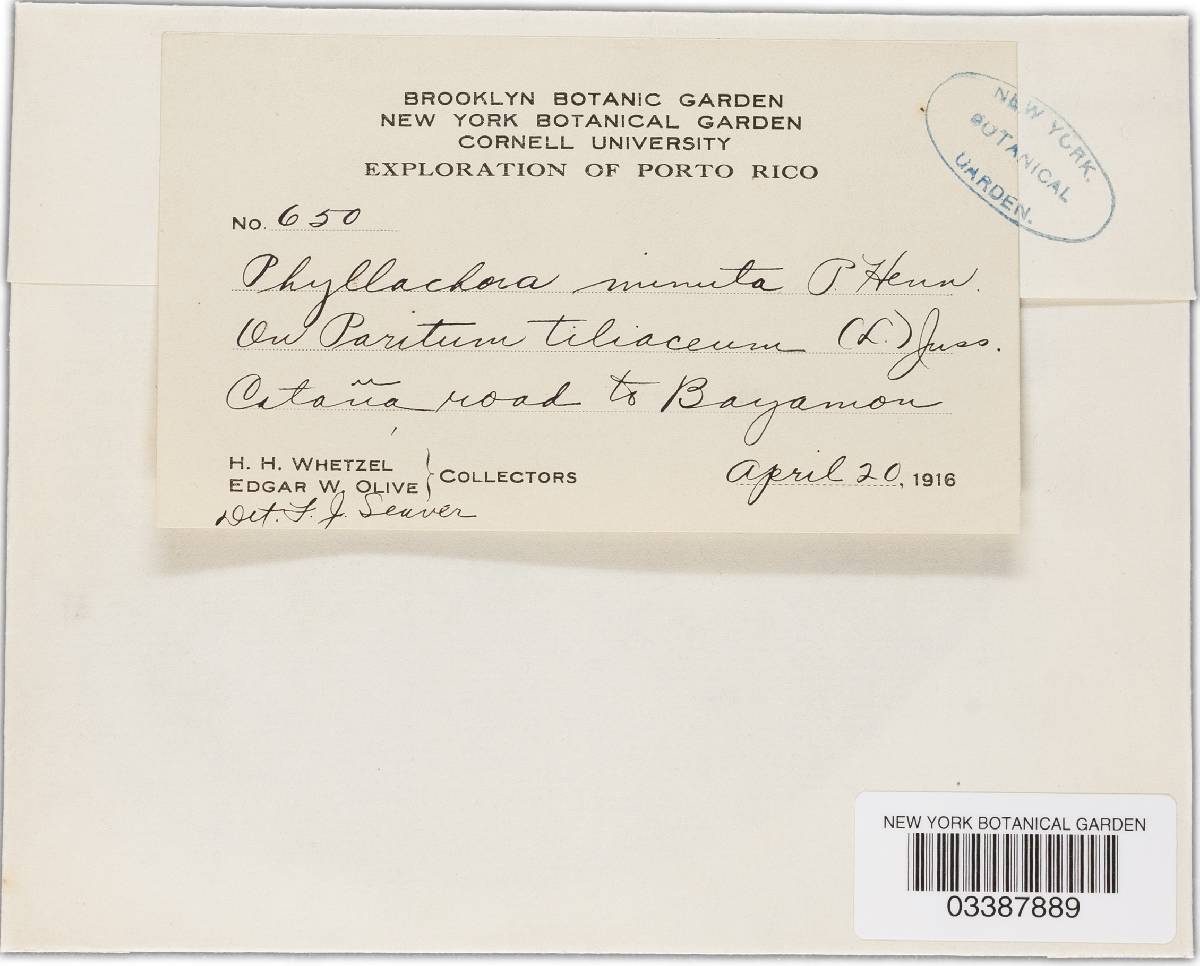 BROOKLYN BOTANIC GARDEN
NEW YORK BOTANICAL GARDEN
CORNELL UNIVERSITY
EXPLORATION OF PORTO RICO
NEW YORK.
BOTANICAL
GARDEN.
No. 650
Phyllachora minuta P Henn.
On Paritum tiliaceum (L.) Juss.
Cataña road to Bayamon
H. H. WHETZEL
EDGAR W. OLIVE } COLLECTORS
April 20, 1916
Det. F. J. Seaver
NEW YORK BOTANICAL GARDEN
03387889